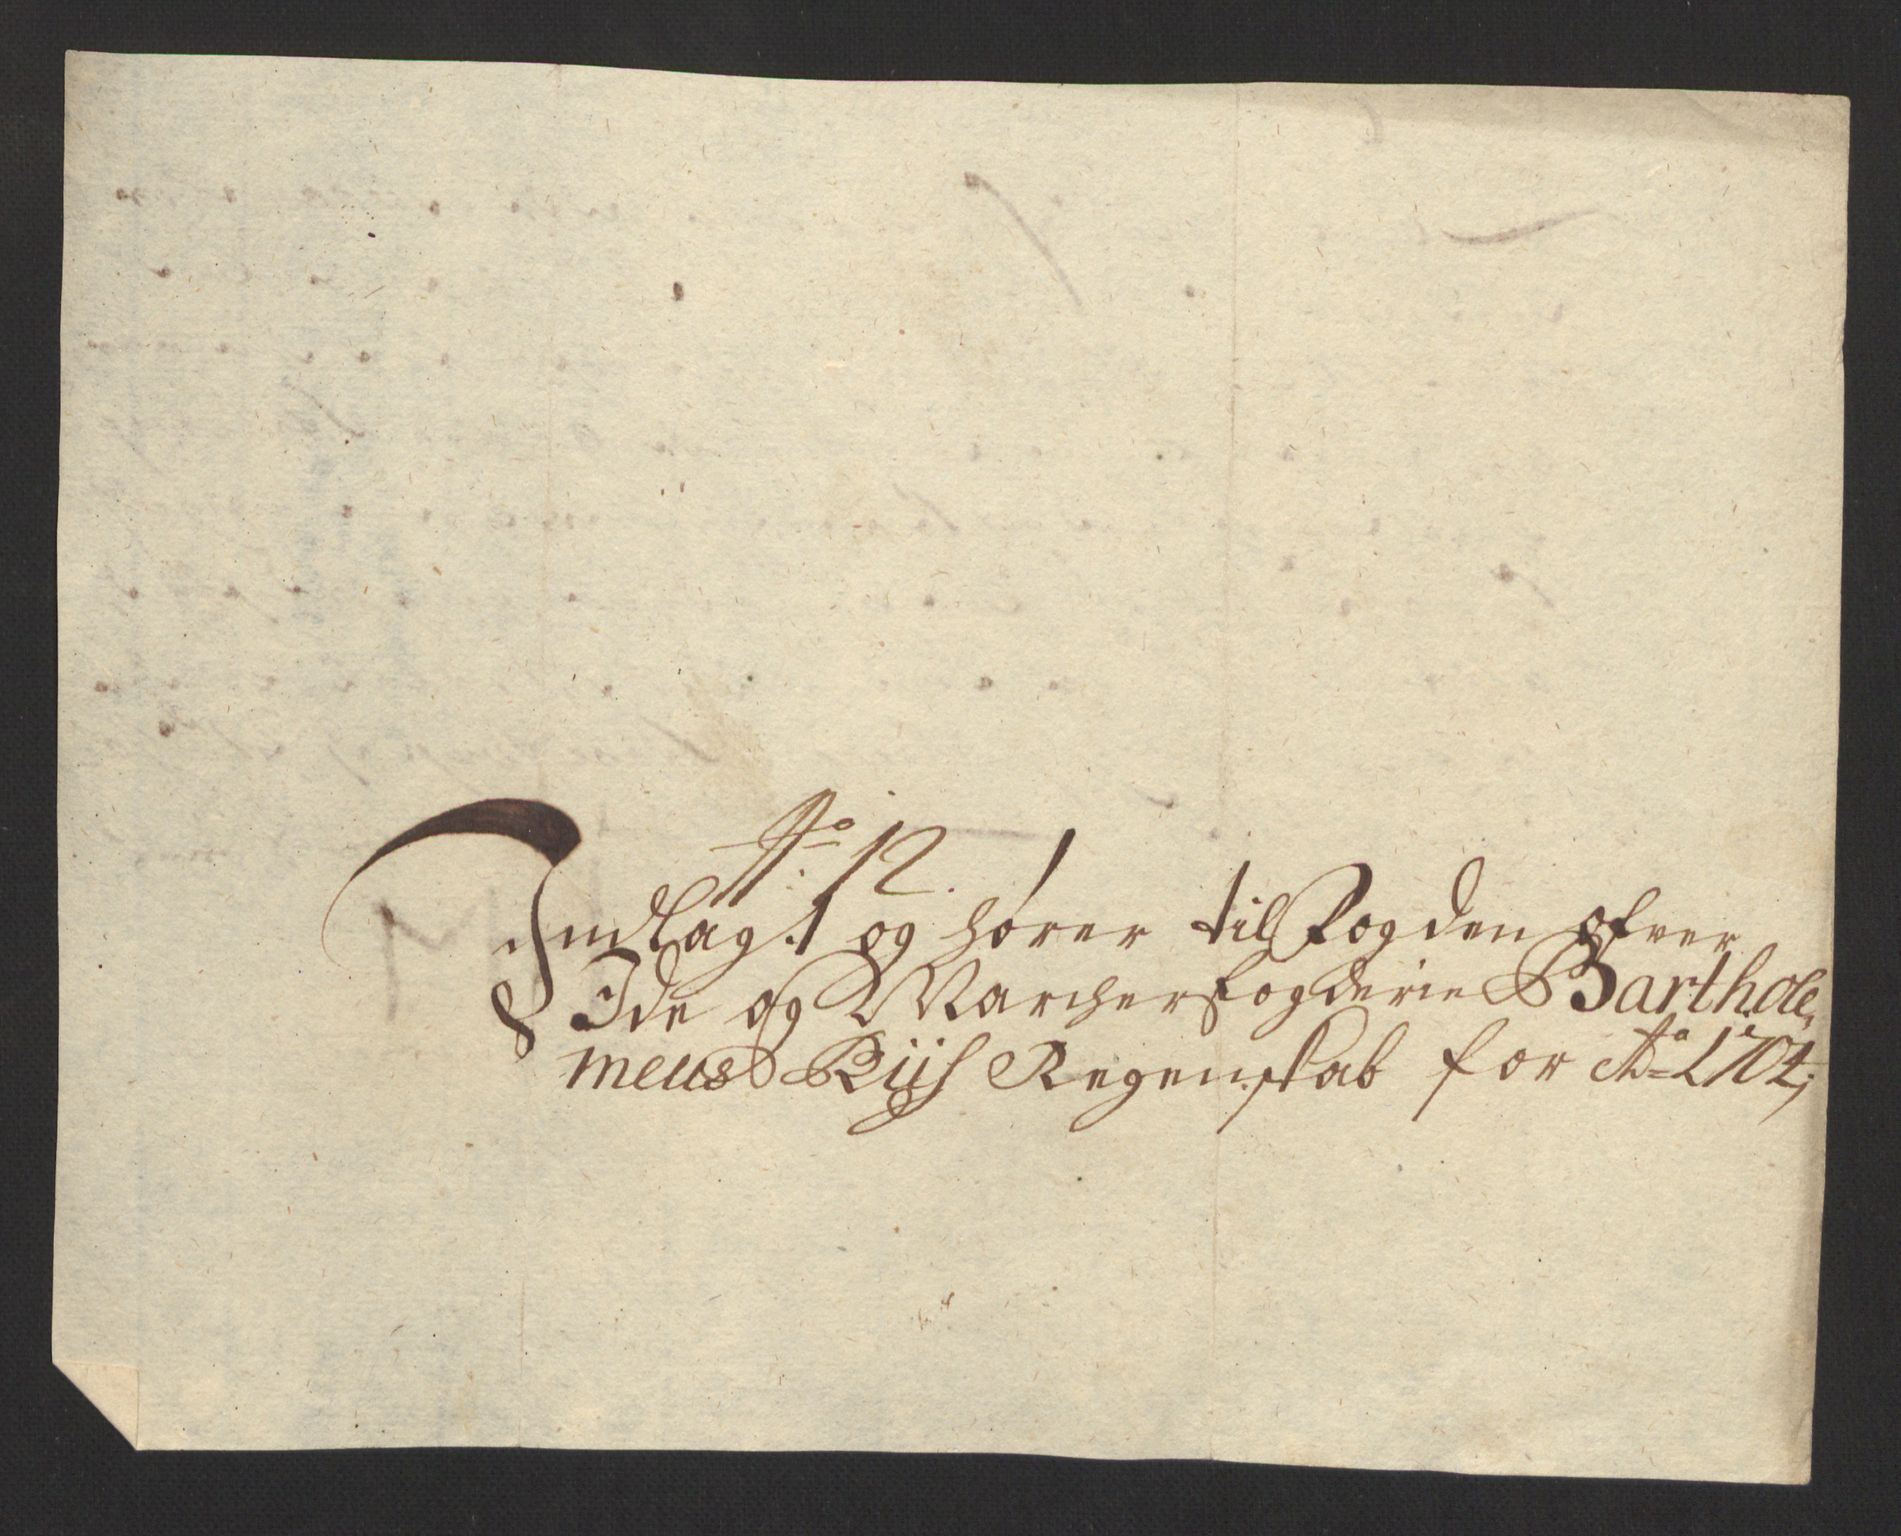 No: 12.
Indlagt og hører til Fogden ofver
Ide og Marcher fogderie Barthole,
meus Riis Regenskab for Ao 1704;